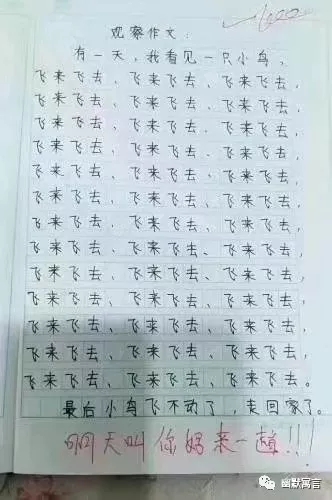 观察作文：
有一天，我看见一只小鸟，
飞来飞去，飞来飞去，飞来飞去，
飞来飞去，飞来飞去，飞来飞去，
飞来飞去，飞来飞去，飞来飞去，
飞来飞去，飞来飞去，飞来飞去，
飞来飞去，飞来飞去，飞来飞去，
飞来飞去，飞来飞去，飞来飞去，
飞来飞去，飞来飞去，飞来飞去，
飞来飞去，飞来飞去，飞来飞去，
飞来飞去，飞来飞去，飞来飞去，
飞来飞去，飞来飞去，飞来飞去，
飞来飞去，飞来飞去，飞来飞去，
飞来飞去，飞来飞去，飞来飞去，
飞来飞去，飞来飞去，飞来飞去。
最后小鸟飞不动了，走回家了。
明天叫你妈来一趟!!!
幽默寓言